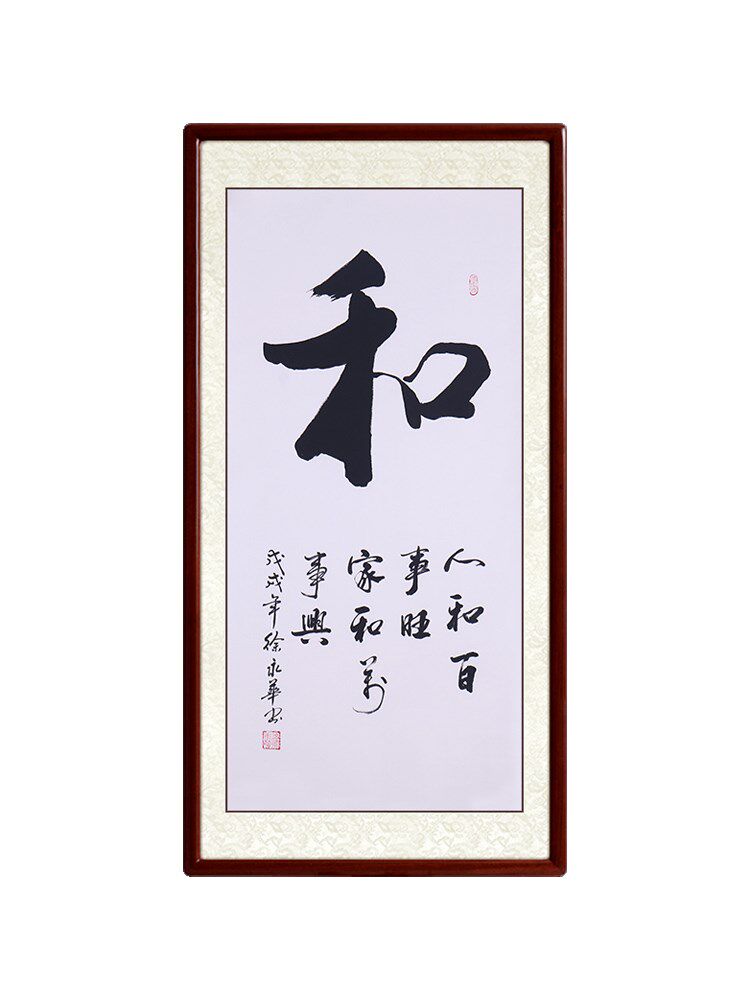 和
人和百
事旺
家和万
事興
戊戌年徐永華书